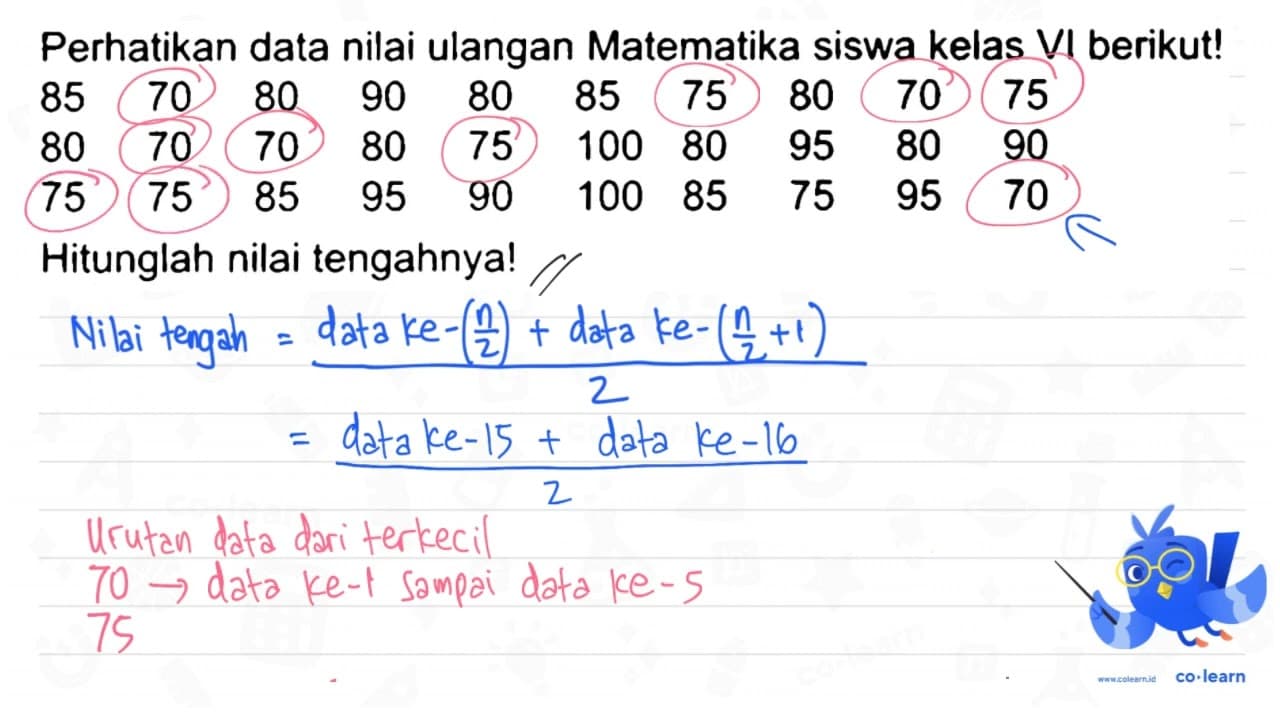 Perhatikan data nilai ulangan Matematika siswa kelas VI berikut!
85 70 80 90 80 85 75 80 70 75
80 70 70 80 75 100 80 95 80 90
75 75 85 95 90 100 85 75 95 70
Hitunglah nilai tengahnya!
Nilai tengah = data ke-(n/2) + data ke-(n/2 +1)
2
= data ke-15 + data ke-16
2
Urutan data dari terkecil
70 → data ke-1 sampai data ke-5
75
www.colearn.id co·learn